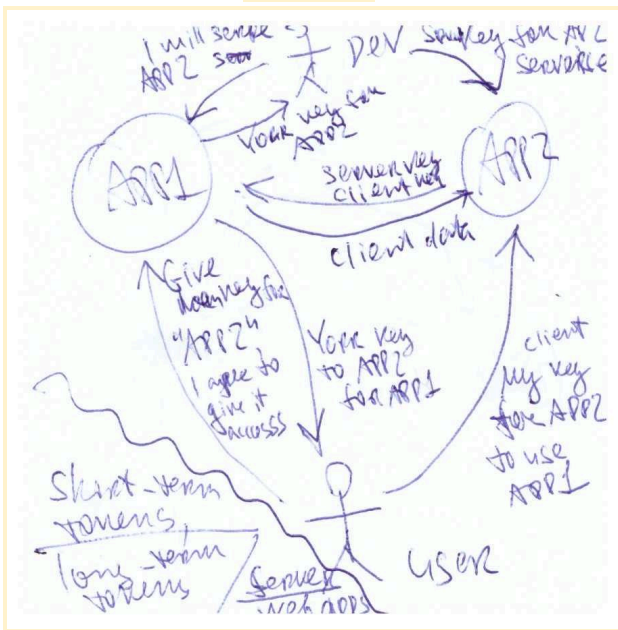 I will serve
APP2
DEV
key for APP2
server
Your key for
APP2
APP1
APP2
server key
client key
client data
Give
key for
"APP2"
I agree to
give it
accesss
Your key
to APP2
for APP1
client
my key
for APP2
to use
APP1
Short-term
tokens,
long-term
tokens
Server
web apps
USER